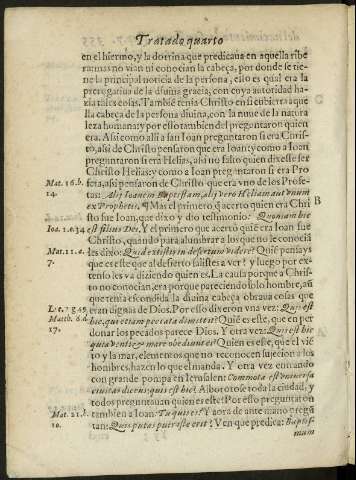 Tratado quarto
en el hiermo, y la dotrina que predicaua en aquella ribe
ra: mas no vian ni conocian la cabeça, por donde se tie-
ne la principal noticia de la persona, esto es qual era la
prerogatiua de la diuina gracia, con cuya autoridad ha-
zia tales cosas. Tambiẽ tenia Christo en si cubierta aque
lla cabeça de la persona diuina, con la nuue de la natura
leza humana: y por esso tambien del preguntaron quien
era. Asi como alli a san Ioan preguntaron si era Chris-
to, asi de Christo pensaron que era Ioan: y como a Ioan
preguntaron si era Helias, asi no faltò quien dixesse ser
Christo Helias: y como a Ioan preguntaron si era Pro
Mat. 16. b.
14.
feta, asi pensaron de Christo que era vno de los Profe-
tas: Alij Ioannem Baptistam, alij vero Heliam aut vnum
ex Prophetis. ¶ Mas el primero q̃ acerto quien era Chri
B
sto fue Ioan, que dixo y dio testimonio: Quoniam hic
Ioa. 1. e. 34
est filius Dei. Y el primero que acertò quiẽ era Ioan fue
Christo, quando para alumbrar a los que no le conociã
Mat. 11. a.
7.
les dixo: Quid existis in desertum videre? Quiẽ pensays
que es este que al desierto salistes a ver? y luego por ex-
tenso les va diziendo quien es. La causa porque a Chris-
to no conocian, era porque pareciendo solo hombre, aũ
que tenia escondida la diuina cabeça obraua cosas que
Luc. 7. g. 49
eran dignas de Dios. Por esso dixeron vna vez: Quis est
Matth. 8. d.
17.
hic, qui etiam peccata dimittit? Quiẽ es este, que en per
donar los pecados parece Dios. Y otra vez: Quis est hic
quia venti & mare obediunt ei? Quien es este, que el viẽ
to y la mar, elementos que no reconocen sujecion a los
hombres, hazen lo que el manda. Y otra vez entrando
con grande pompa en Ierusalen: Commota est vniuersa
ciuitas dicens: quis est hic? Alborotose toda la ciudad, y
todos preguntauan quien es este: Por esso preguntaron
Mat. 21. b.
10.
tambien a Ioan: Tu quis es? Y aora de ante mano pregũ
tan: Quis putas puer iste erit? Ven que predica: Baptis-
mum